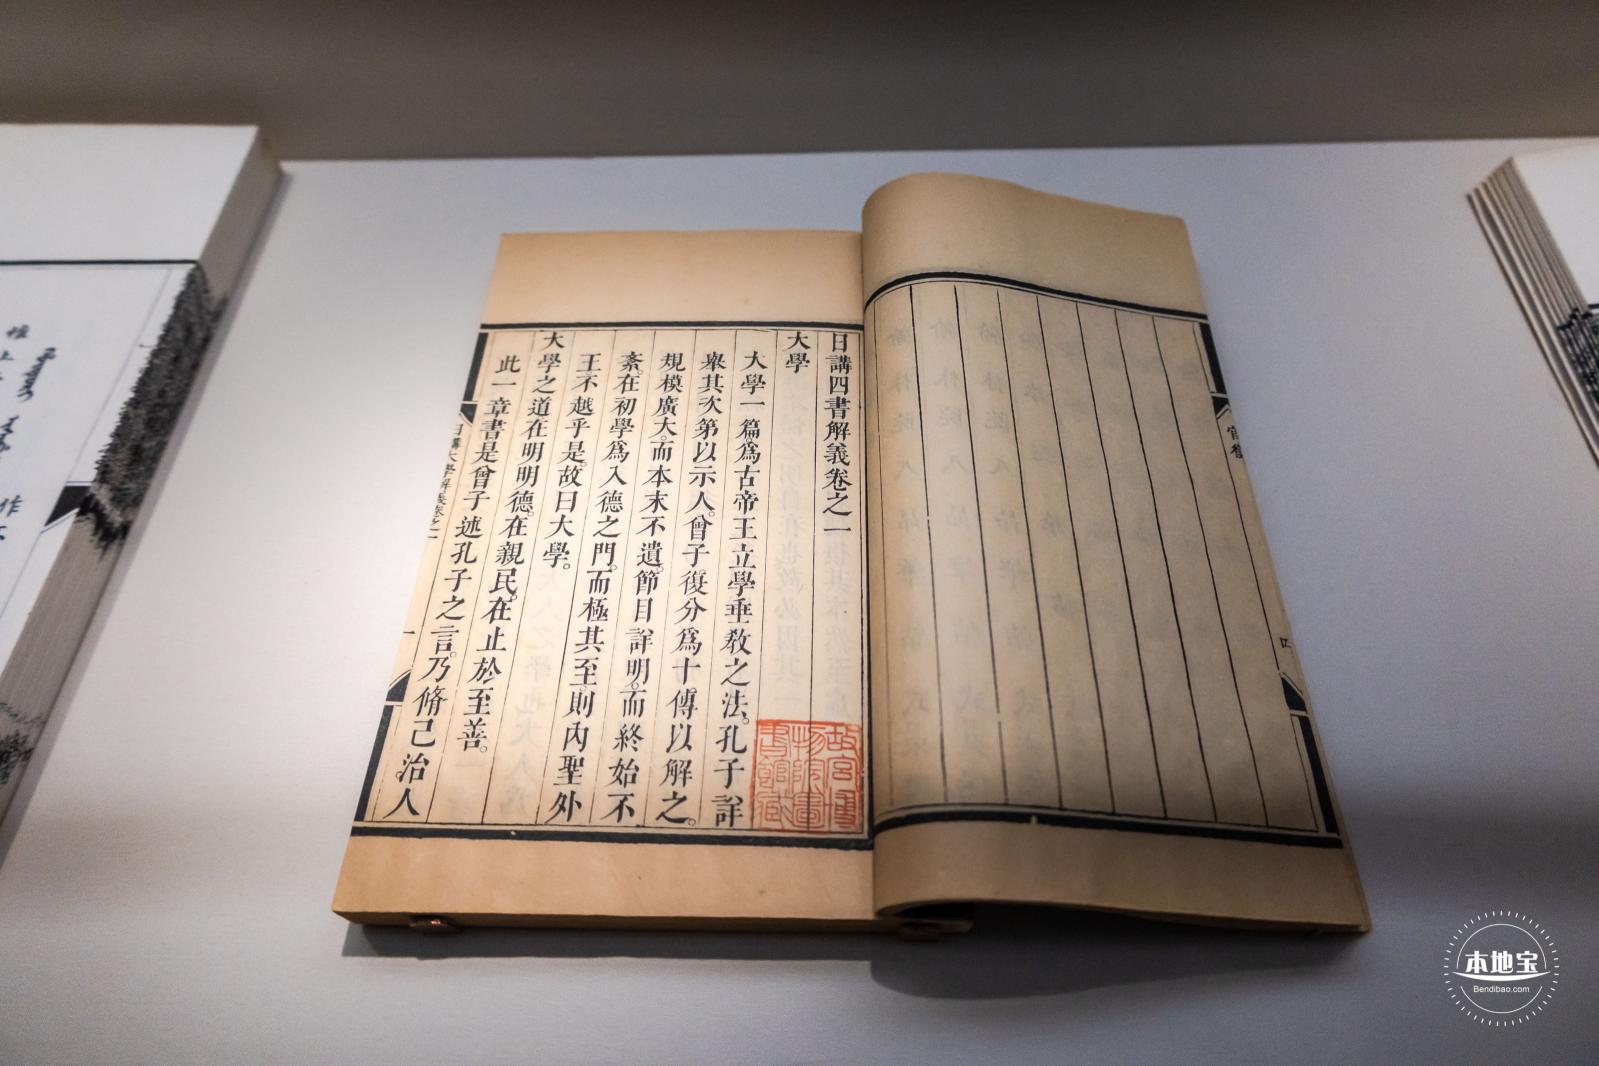 日講四書解義卷之一
大學
大學一篇。爲古帝王立學垂敎之法。孔子詳
舉其次第以示人。曾子復分爲十傳以解之。
規模廣大。而本末不遺。節目詳明。而終始不
紊。在初學爲入德之門。而極其至。則內聖外
王不越乎是。故曰大學。
大學之道在明明德。在親民。在止於至善。
此一章書是曾子述孔子之言。乃脩己治人
日講大學解義卷之一
一
故宮博
物院圖
書館藏
官銜
四
本地宝
Bendibao.com